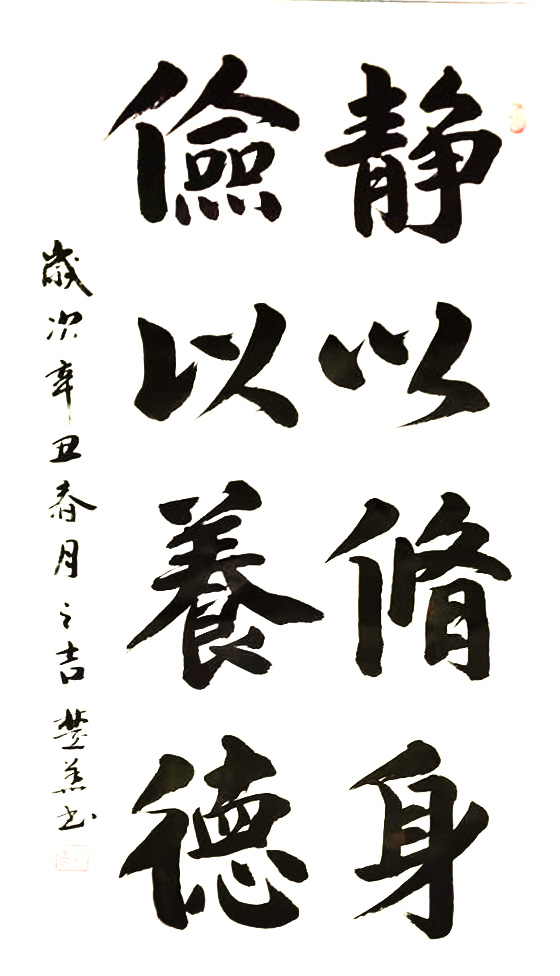 静以脩身
儉以養德
歲次辛丑春月之吉楚羔书